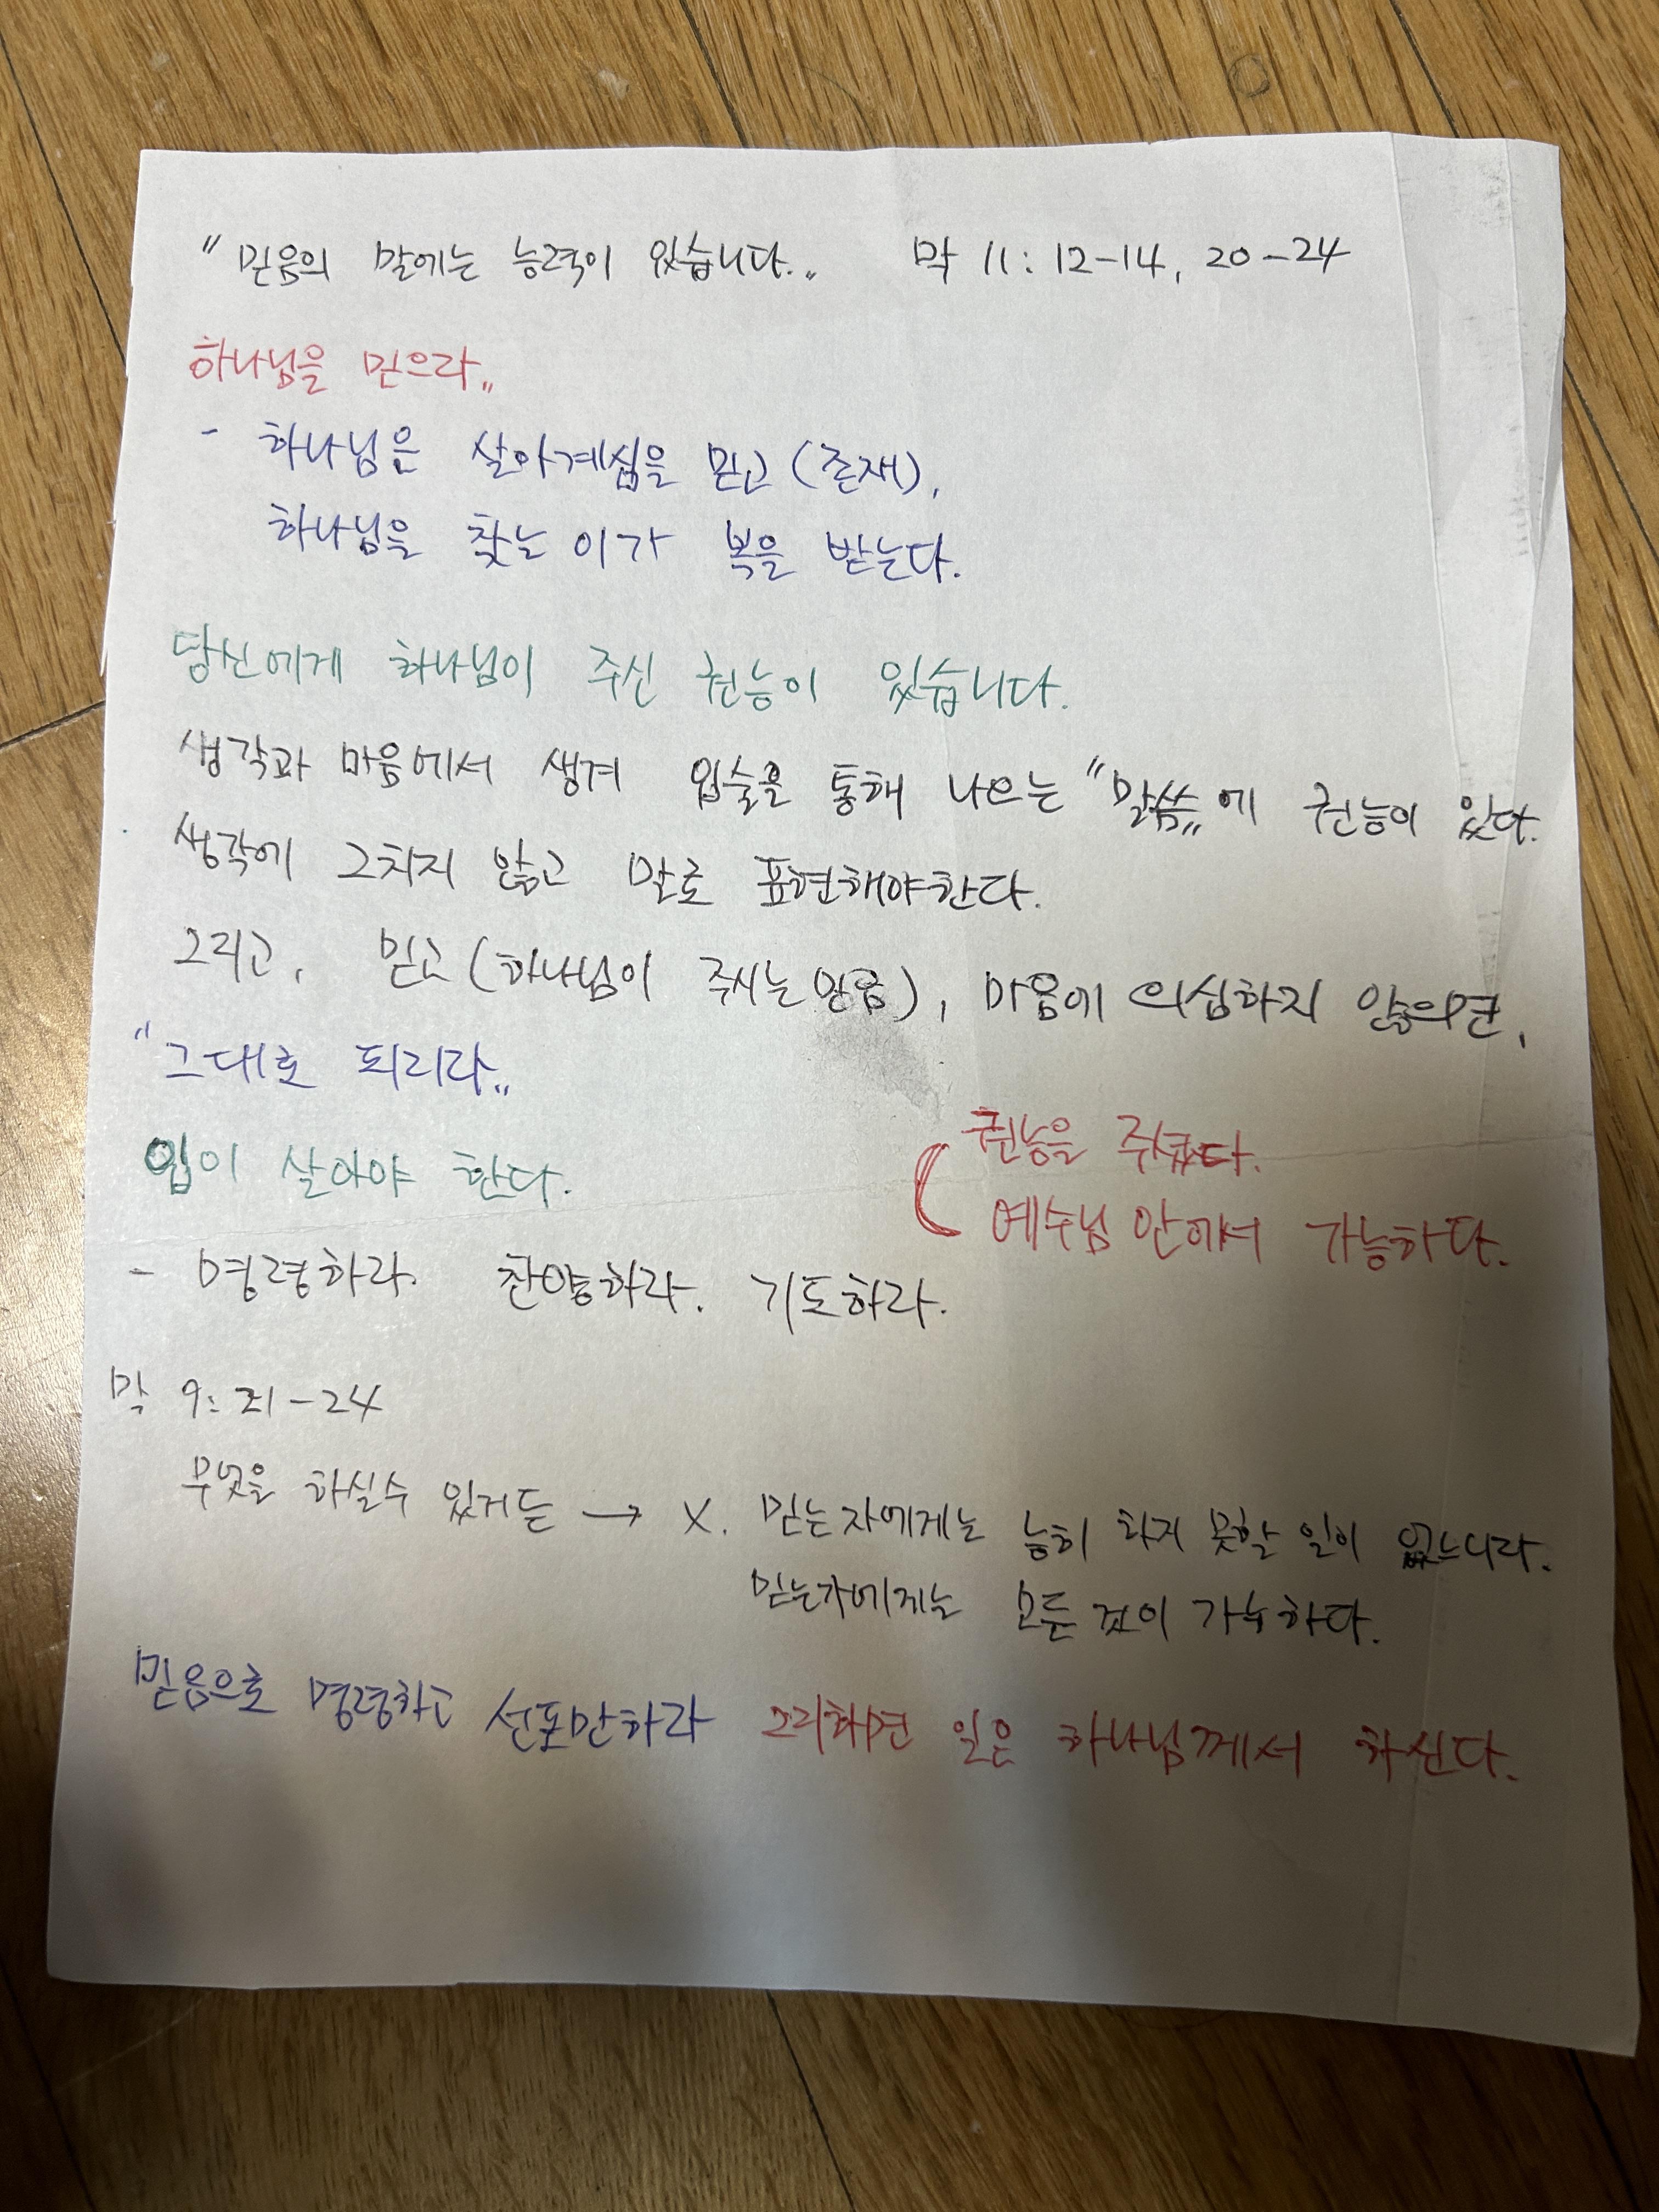 "믿음의 말에는 능력이 있습니다." 막 11: 12-14, 20-24
하나님을 믿으라"
- 하나님은 살아계심을 믿고(존재),
하나님을 찾는 이가 복을 받는다.
당신에게 하나님이 주신 권능이 있습니다.
생각과 마음에서 생겨 입술을 통해 나오는 "말씀"에 권능이 있다.
생각에 그치지 않고 말로 표현해야한다.
그리고, 믿고(하나님이 주시는 믿음), 마음에 의심하지 않으면,
"그대로 되리라"
입이 살아야 한다.
권능을 주셨다.
예수님 안에서 가능하다.
- 명령하라. 찬양하라. 기도하라.
막 9: 21-24
무엇을 하실수 있거든 → X. 믿는자에게는 능히 하지 못할 일이 없느니라.
믿는자에게는 모든 것이 가능하다.
믿음으로 명령하고 선포만하라 그리하면 일은 하나님께서 하신다.